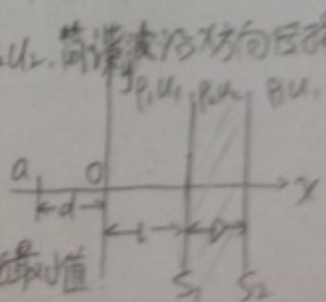 u₂.简谐波沿x方向
y
ρ₁u₁ ρ₂u₂ ρ₁u₁
a O x
d L D
值
S₁ S₂